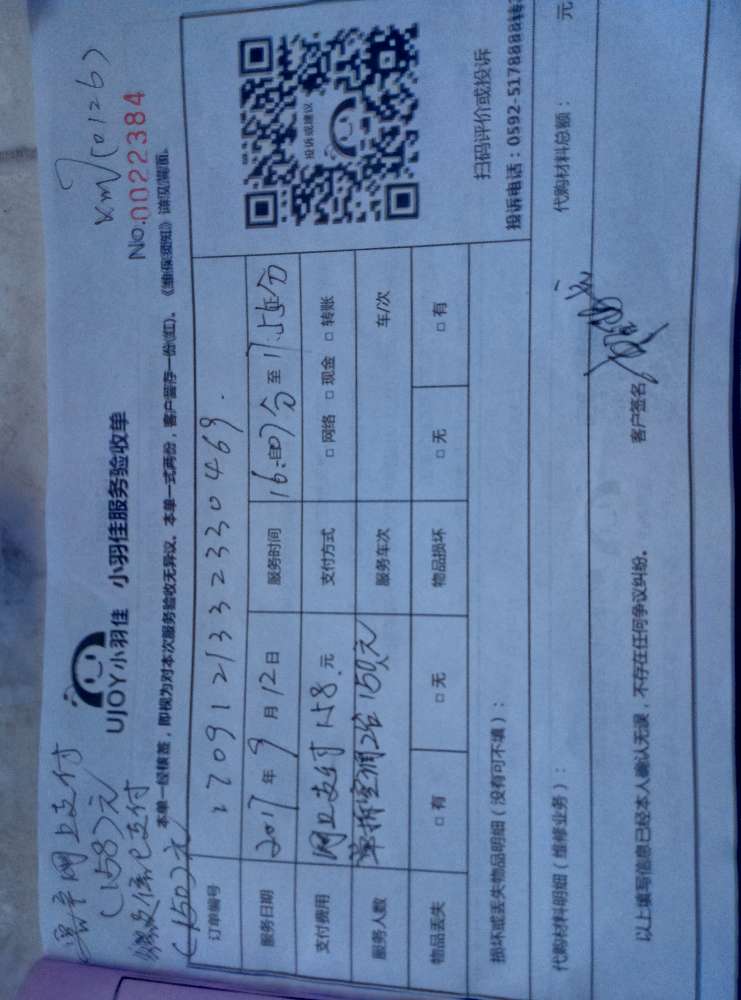 网上支付
(158)元
微信已支付
(150)元
km7(0126)
UJOY小羽佳 小羽佳服务验收单
No.0022384
本单一经核签，即视为对本次服务验收无异议。本单一式两份，客户留存一份(红)。《维保须知》详见背面。
订单编号 1709121332330469.
服务日期 2017年9月12日 服务时间 16:07分至17:55分
支付费用 网上支付158.元 支付方式 □网络 □现金 □转账
服务人数 单拆空调2台150元 人 服务车次 车/次
物品丢失 □有 □无 物品损坏 □无 □有
投诉或建议
扫码评价或投诉
投诉电话：0592-5178888转
损坏或丢失物品明细（没有可不填）：
代购材料明细（维修业务）： 代购材料总额： 元
以上填写信息已经本人确认无误，不存在任何争议纠纷。 客户签名